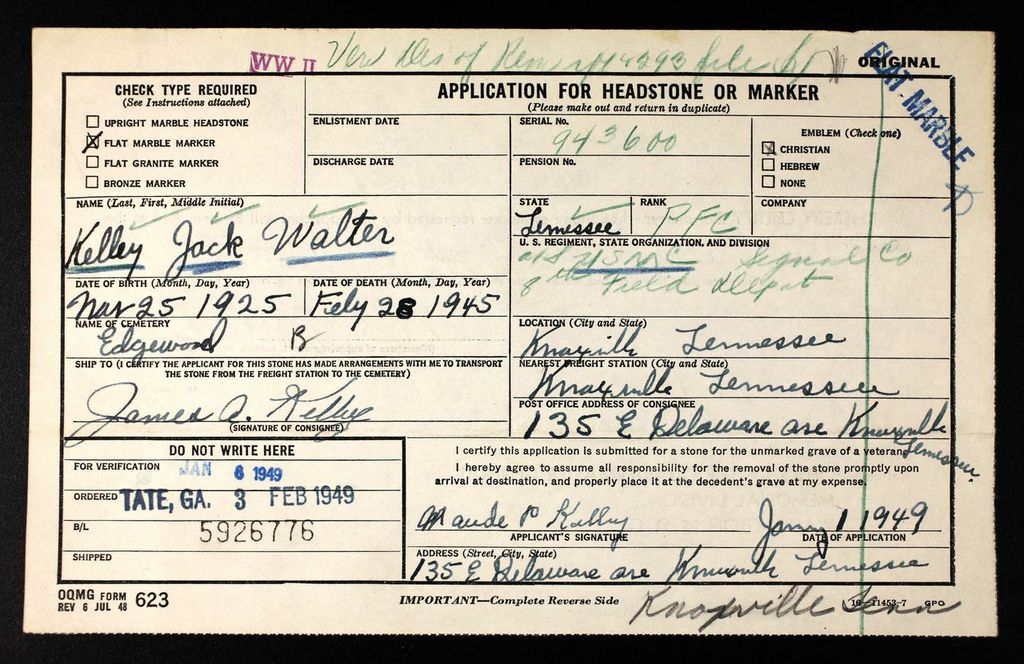 WW II Ver Des of Rem 
ORIGINAL
FLAT MARBLE
CHECK TYPE REQUIRED
(See Instructions attached)
UPRIGHT MARBLE HEADSTONE
FLAT MARBLE MARKER
FLAT GRANITE MARKER
BRONZE MARKER
APPLICATION FOR HEADSTONE OR MARKER
(Please make out and return in duplicate)
ENLISTMENT DATE
DISCHARGE DATE
SERIAL No.
943600
PENSION No.
EMBLEM (Check one)
CHRISTIAN
HEBREW
NONE
NAME (Last, First, Middle Initial)
Kelley Jack Walter
STATE
Tennessee
RANK
PFC
COMPANY
U. S. REGIMENT, STATE ORGANIZATION, AND DIVISION
USMC Signal Co
8th Field Depot
DATE OF BIRTH (Month, Day, Year)
Nov 25 1925
DATE OF DEATH (Month, Day, Year)
Feby 28 1945
NAME OF CEMETERY
Edgewood
LOCATION (City and State)
Knoxville Tennessee
SHIP TO (I CERTIFY THE APPLICANT FOR THIS STONE HAS MADE ARRANGEMENTS WITH ME TO TRANSPORT
THE STONE FROM THE FREIGHT STATION TO THE CEMETERY)
James A. Kelley
(SIGNATURE OF CONSIGNEE)
NEAREST FREIGHT STATION (City and State)
Knoxville Tennessee
POST OFFICE ADDRESS OF CONSIGNEE
135 E Delaware ave Knoxville
Tennessee.
DO NOT WRITE HERE
FOR VERIFICATION
JAN 6 1949
ORDERED
TATE, GA. 3 FEB 1949
B/L
5926776
SHIPPED
I certify this application is submitted for a stone for the unmarked grave of a veteran.
I hereby agree to assume all responsibility for the removal of the stone promptly upon
arrival at destination, and properly place it at the decedent's grave at my expense.
Maude P Kelley
APPLICANT'S SIGNATURE
Jany 1 1949
DATE OF APPLICATION
ADDRESS (Street, City, State)
135 E Delaware ave Knoxville Tennessee
Knoxville Tenn
OQMG FORM
REV 6 JUL 48 623
IMPORTANT—Complete Reverse Side
16—11453-7 GPO